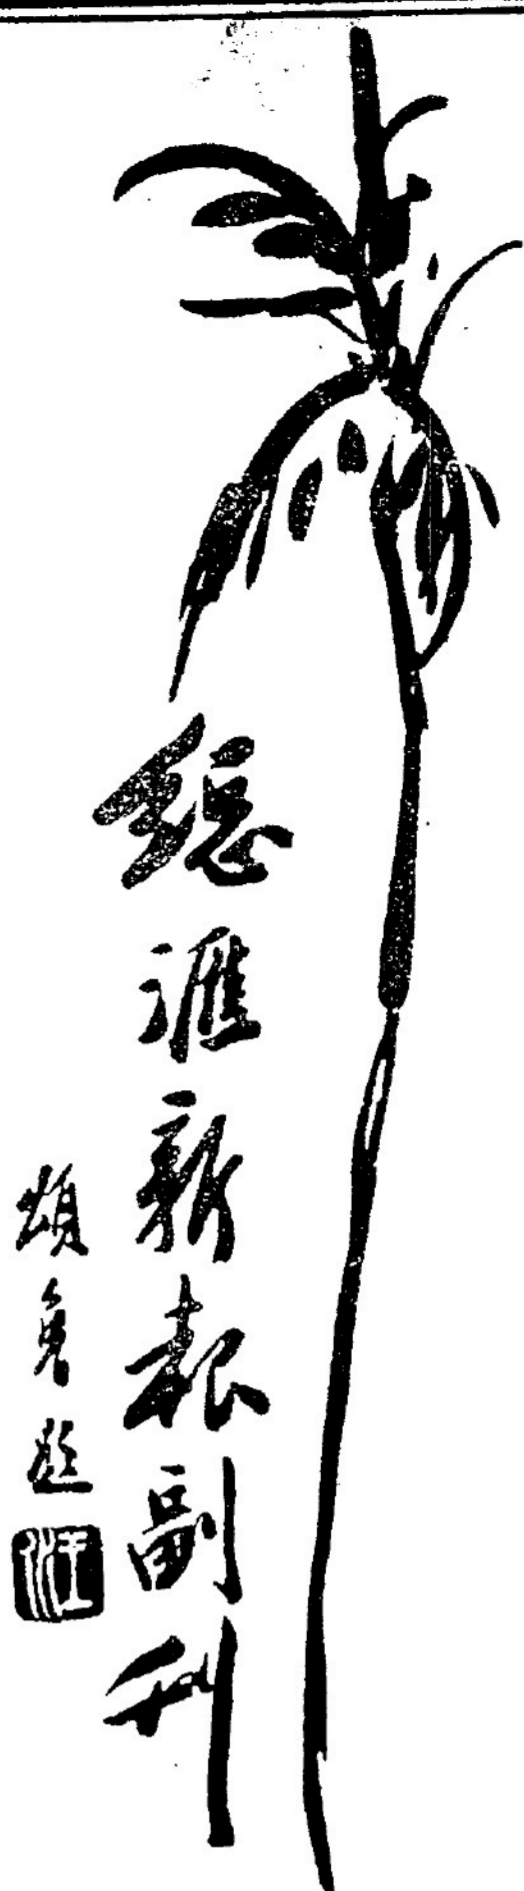 總滙新報副刊
頌魯題
汪